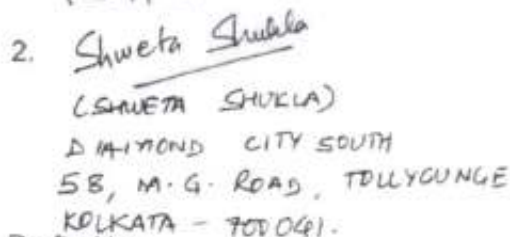 2. Shweta Shukla
(SHWETA SHUKLA)
DIAMOND CITY SOUTH
58, M.G. ROAD, TOLLYGUNGE
KOLKATA - 700041.